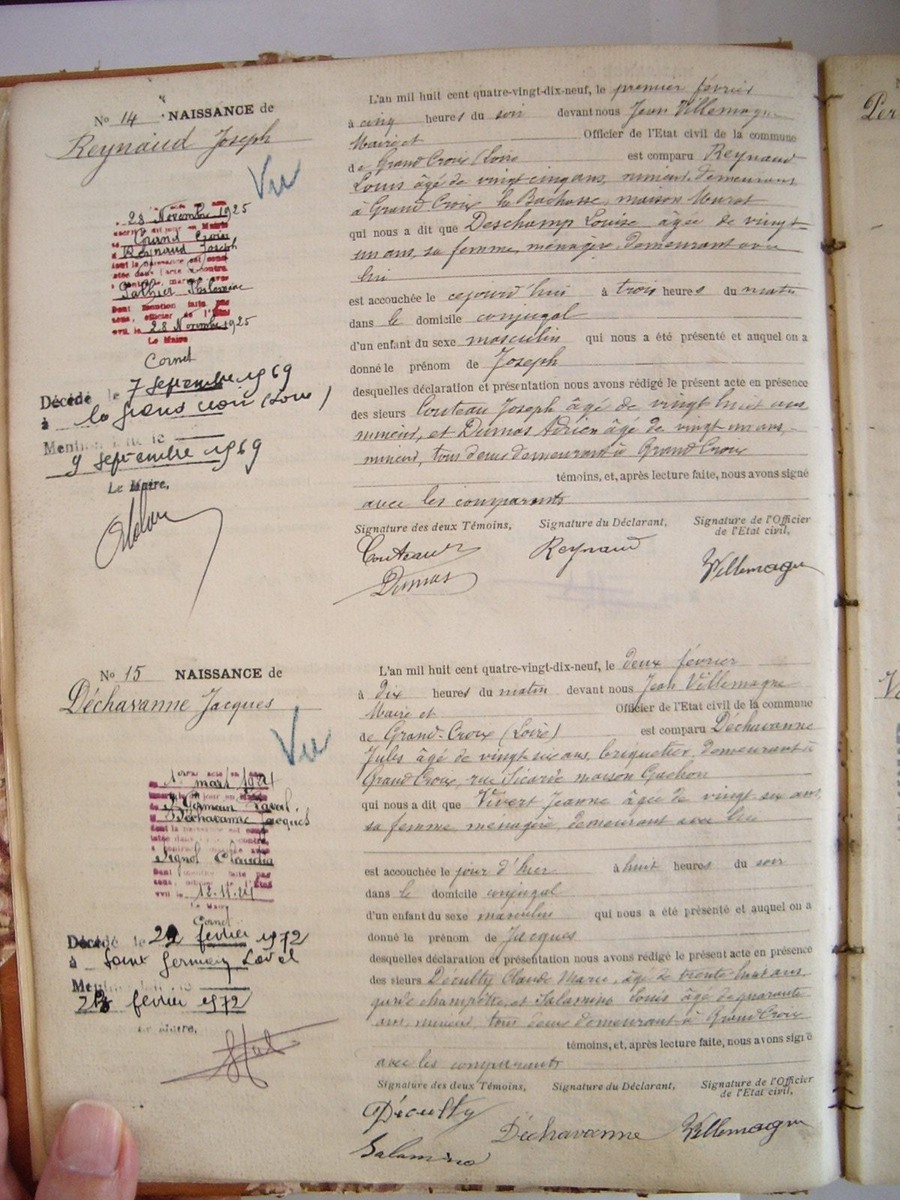 No 14 NAISSANCE de
Reynaud Joseph
Vu
23 Novembre 1925
Grand Croix
Reynaud Joseph
Philomène
28 Novembre 1925
Le Maire
Cornet
Décédé le 7 septembre 1969
à la grand croix (Loire)
Mention faite le
9 septembre 1969
Le Maire,
L'an mil huit cent quatre-vingt-dix-neuf, le premier février
à cinq heures du soir devant nous Jean Villemagne
Maire et Officier de l'Etat civil de la commune
de Grand Croix (Loire) est comparu Reynaud
Louis âgé de vingt cinq ans, mineur, demeurant
à Grand Croix la Bachasse, maison Murat
qui nous a dit que Deschamp Louise âgée de vingt
un ans, sa femme, ménagère, demeurant avec
lui
est accouchée le cejourd'hui à trois heures du matin
dans le domicile conjugal
d'un enfant du sexe masculin qui nous a été présenté et auquel on a
donné le prénom de Joseph
desquelles déclaration et présentation nous avons rédigé le présent acte en présence
des sieurs Couteau Joseph âgé de vingt huit ans
mineur, et Dumas Adrien âgé de vingt un ans,
mineur, tous deux demeurant à Grand Croix
témoins, et, après lecture faite, nous avons signé
avec les comparants
Signature des deux Témoins, Signature du Déclarant, Signature de l'Officier
de l'Etat civil,
Couteau Reynaud Villemagne
Dumas
No 15 NAISSANCE de
Déchavanne Jacques
Vu
1er mars 1921
St Germain Laval
Déchavanne Jacques
Claudia
Cornet
Décédé le 22 février 1972
à Saint Germain Laval
février 1972
Le Maire,
L'an mil huit cent quatre-vingt-dix-neuf, le deux février
à dix heures du matin devant nous Jean Villemagne
Maire et Officier de l'Etat civil de la commune
de Grand-Croix (Loire) est comparu Déchavanne
Jules âgé de vingt six ans, briquetier, demeurant à
Grand Croix, rue Sicarée maison Gachon
qui nous a dit que Vivert Jeanne âgée de vingt six ans,
sa femme, ménagère, demeurant avec lui
est accouchée le jour d'hier à huit heures du soir
dans le domicile conjugal
d'un enfant du sexe masculin qui nous a été présenté et auquel on a
donné le prénom de Jacques
desquelles déclaration et présentation nous avons rédigé le présent acte en présence
des sieurs Déculty Claude Marie, âgé de trente huit ans,
garde champêtre, et Salamino Louis âgé de quarante
ans, mineur, tous deux demeurant à Grand Croix
témoins, et, après lecture faite, nous avons signé
avec les comparants
Signature des deux Témoins, Signature du Déclarant, Signature de l'Officier
de l'Etat civil,
Déculty Déchavanne Villemagne
Salamino
Per